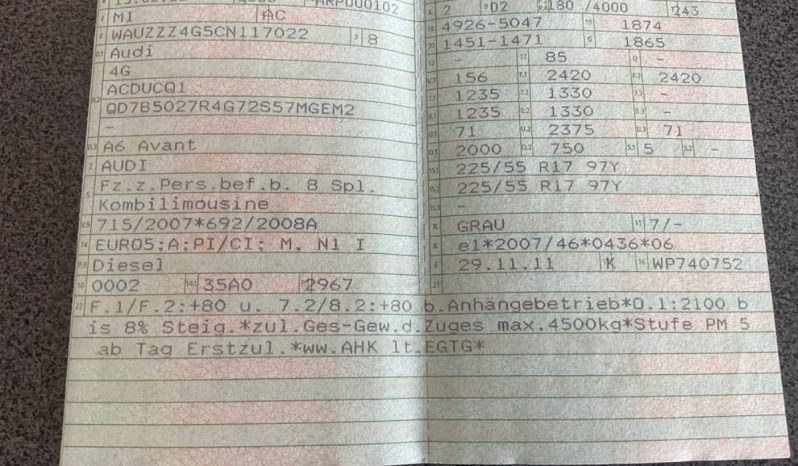 M1 AC
WAUZZZ4G5CN117022 8
Audi
4G
ACDUCQ1
QD7B5027R4G72S57MGEM2
-
A6 Avant
AUDI
Fz.z.Pers.bef.b. 8 Spl.
Kombilimousine
715/2007*692/2008A
EURO5;A;PI/CI; M, N1 I
Diesel
0002 35A0 2967
2 02 180 /4000 243
4926-5047 1874
1451-1471 1865
- 85 -
156 2420 2420
1235 1330 -
1235 1330 -
71 2375 71
2000 750 5 -
225/55 R17 97Y
225/55 R17 97Y
-
GRAU 7/-
e1*2007/46*0436*06
29.11.11 K WP740752
F.1/F.2:+80 u. 7.2/8.2:+80 b.Anhängebetrieb*O.1:2100 b
is 8% Steig.*zul.Ges-Gew.d.Zuges max.4500kg*Stufe PM 5
ab Tag Erstzul.*ww.AHK lt.EGTG*